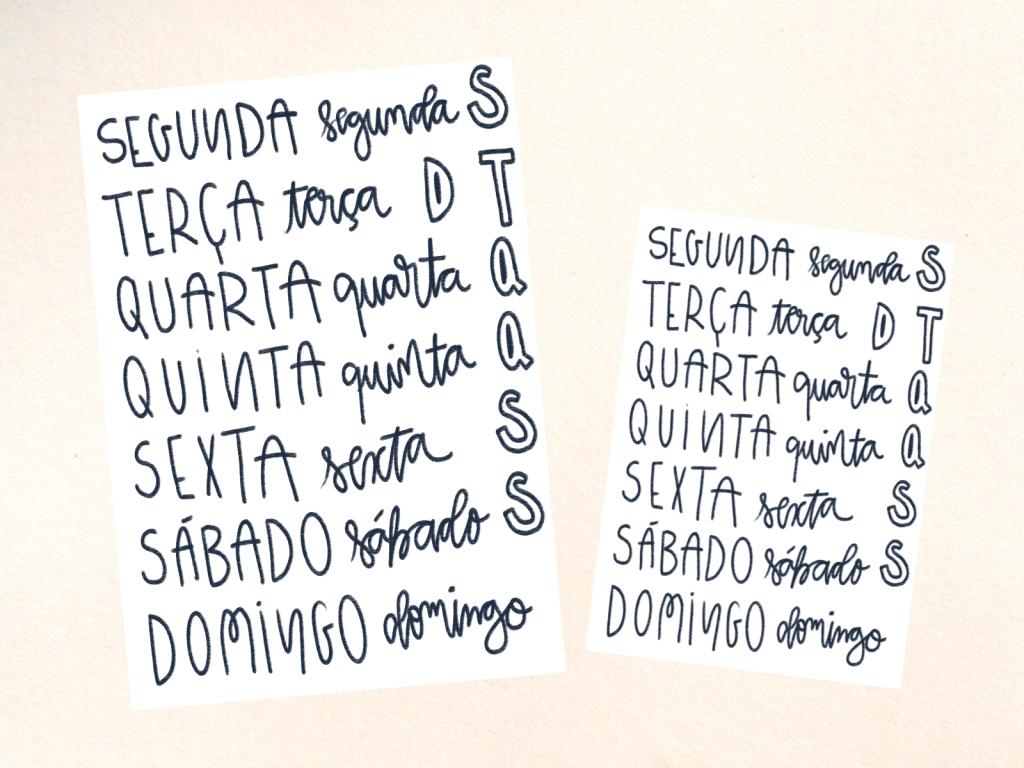 SEGUNDA segunda S
TERÇA terça D T
QUARTA quarta Q
QUINTA quinta Q
SEXTA sexta S
SÁBADO sábado S
DOMINGO domingo
SEGUNDA segunda S
TERÇA terça D T
QUARTA quarta Q
QUINTA quinta Q
SEXTA sexta S
SÁBADO sábado S
DOMINGO domingo